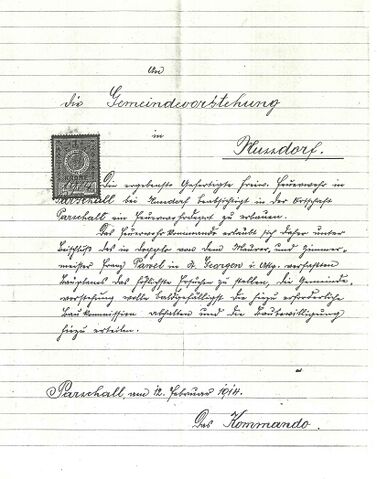 An
die Gemeindevorstehung
in
Nussdorf.
Die ergebenst Gefertigte freiw. Feuerwehr in
Parschall bei Nussdorf beabsichtigt in der Ortschaft
Parschall ein Feuerwehrdepot zu erbauen.
Das Feuerwehrkommando erlaubt sich daher unter
Beischluß des in doppelo von dem Maurer, und Zimmer-
meister Franz Pavel in St. Georgen i. Attg. verfaßten
Bauplanes das höflichste Ersuchen zu stellen, die Gemeinde-
vorstehung wolle baldgefälligst die hiezu erforderliche
Baukommission abhalten und die Baubewilligung
hiezu erteilen.
Parschall am 12. Februar 1914.
Das Kommando.